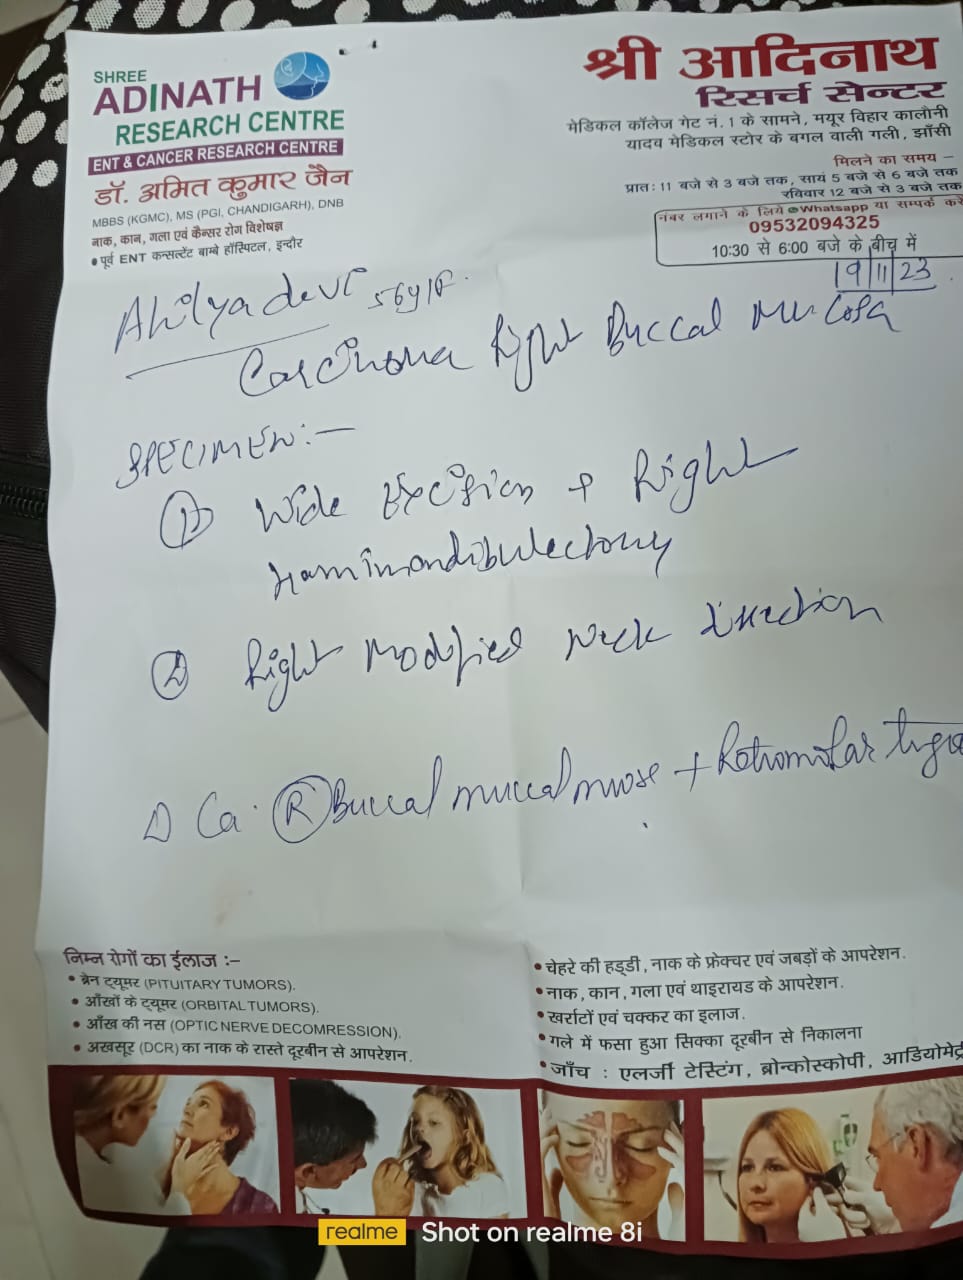 SHREE
ADINATH
RESEARCH CENTRE
ENT & CANCER RESEARCH CENTRE
डॉ. अमित कुमार जैन
MBBS (KGMC), MS (PGI, CHANDIGARH), DNB
नाक, कान, गला एवं कैन्सर रोग विशेषज्ञ
• पूर्व ENT कन्सल्टेंट बाम्बे हॉस्पिटल, इन्दौर
श्री आदिनाथ
रिसर्च सेन्टर
मेडिकल कॉलेज गेट नं. 1 के सामने, मयूर विहार कालौनी
यादव मेडिकल स्टोर के बगल वाली गली, झाँसी
मिलने का समय –
प्रातः 11 बजे से 3 बजे तक, सायं 5 बजे से 6 बजे तक
रविवार 12 बजे से 3 बजे तक
नंबर लगाने के लिये Whatsapp या सम्पर्क करें
09532094325
10:30 से 6:00 बजे के बीच में
19/11/23
Ahilya devi 56y/F
Carcinoma Right Buccal Mucosa
SPECIMEN:-
① Wide Excision + Right
Hamimandibulectomy
② Right Modified Neck Dissection
Ca. Ⓡ Buccal + Retromolar
निम्न रोगों का ईलाज :–
• ब्रेन ट्यूमर (PITUITARY TUMORS).
• आँखों के ट्यूमर (ORBITAL TUMORS).
• आँख की नस (OPTIC NERVE DECOMRESSION).
• अखसूर (DCR) का नाक के रास्ते दूरबीन से आपरेशन.
• चेहरे की हड्डी, नाक के फ्रेक्चर एवं जबड़ों के आपरेशन.
• नाक, कान, गला एवं थाइरायड के आपरेशन.
• खर्राटों एवं चक्कर का इलाज.
• गले में फसा हुआ सिक्का दूरबीन से निकालना
• जाँच : एलर्जी टेस्टिंग, ब्रोन्कोस्कोपी, आडियोमेट्री
realme Shot on realme 8i